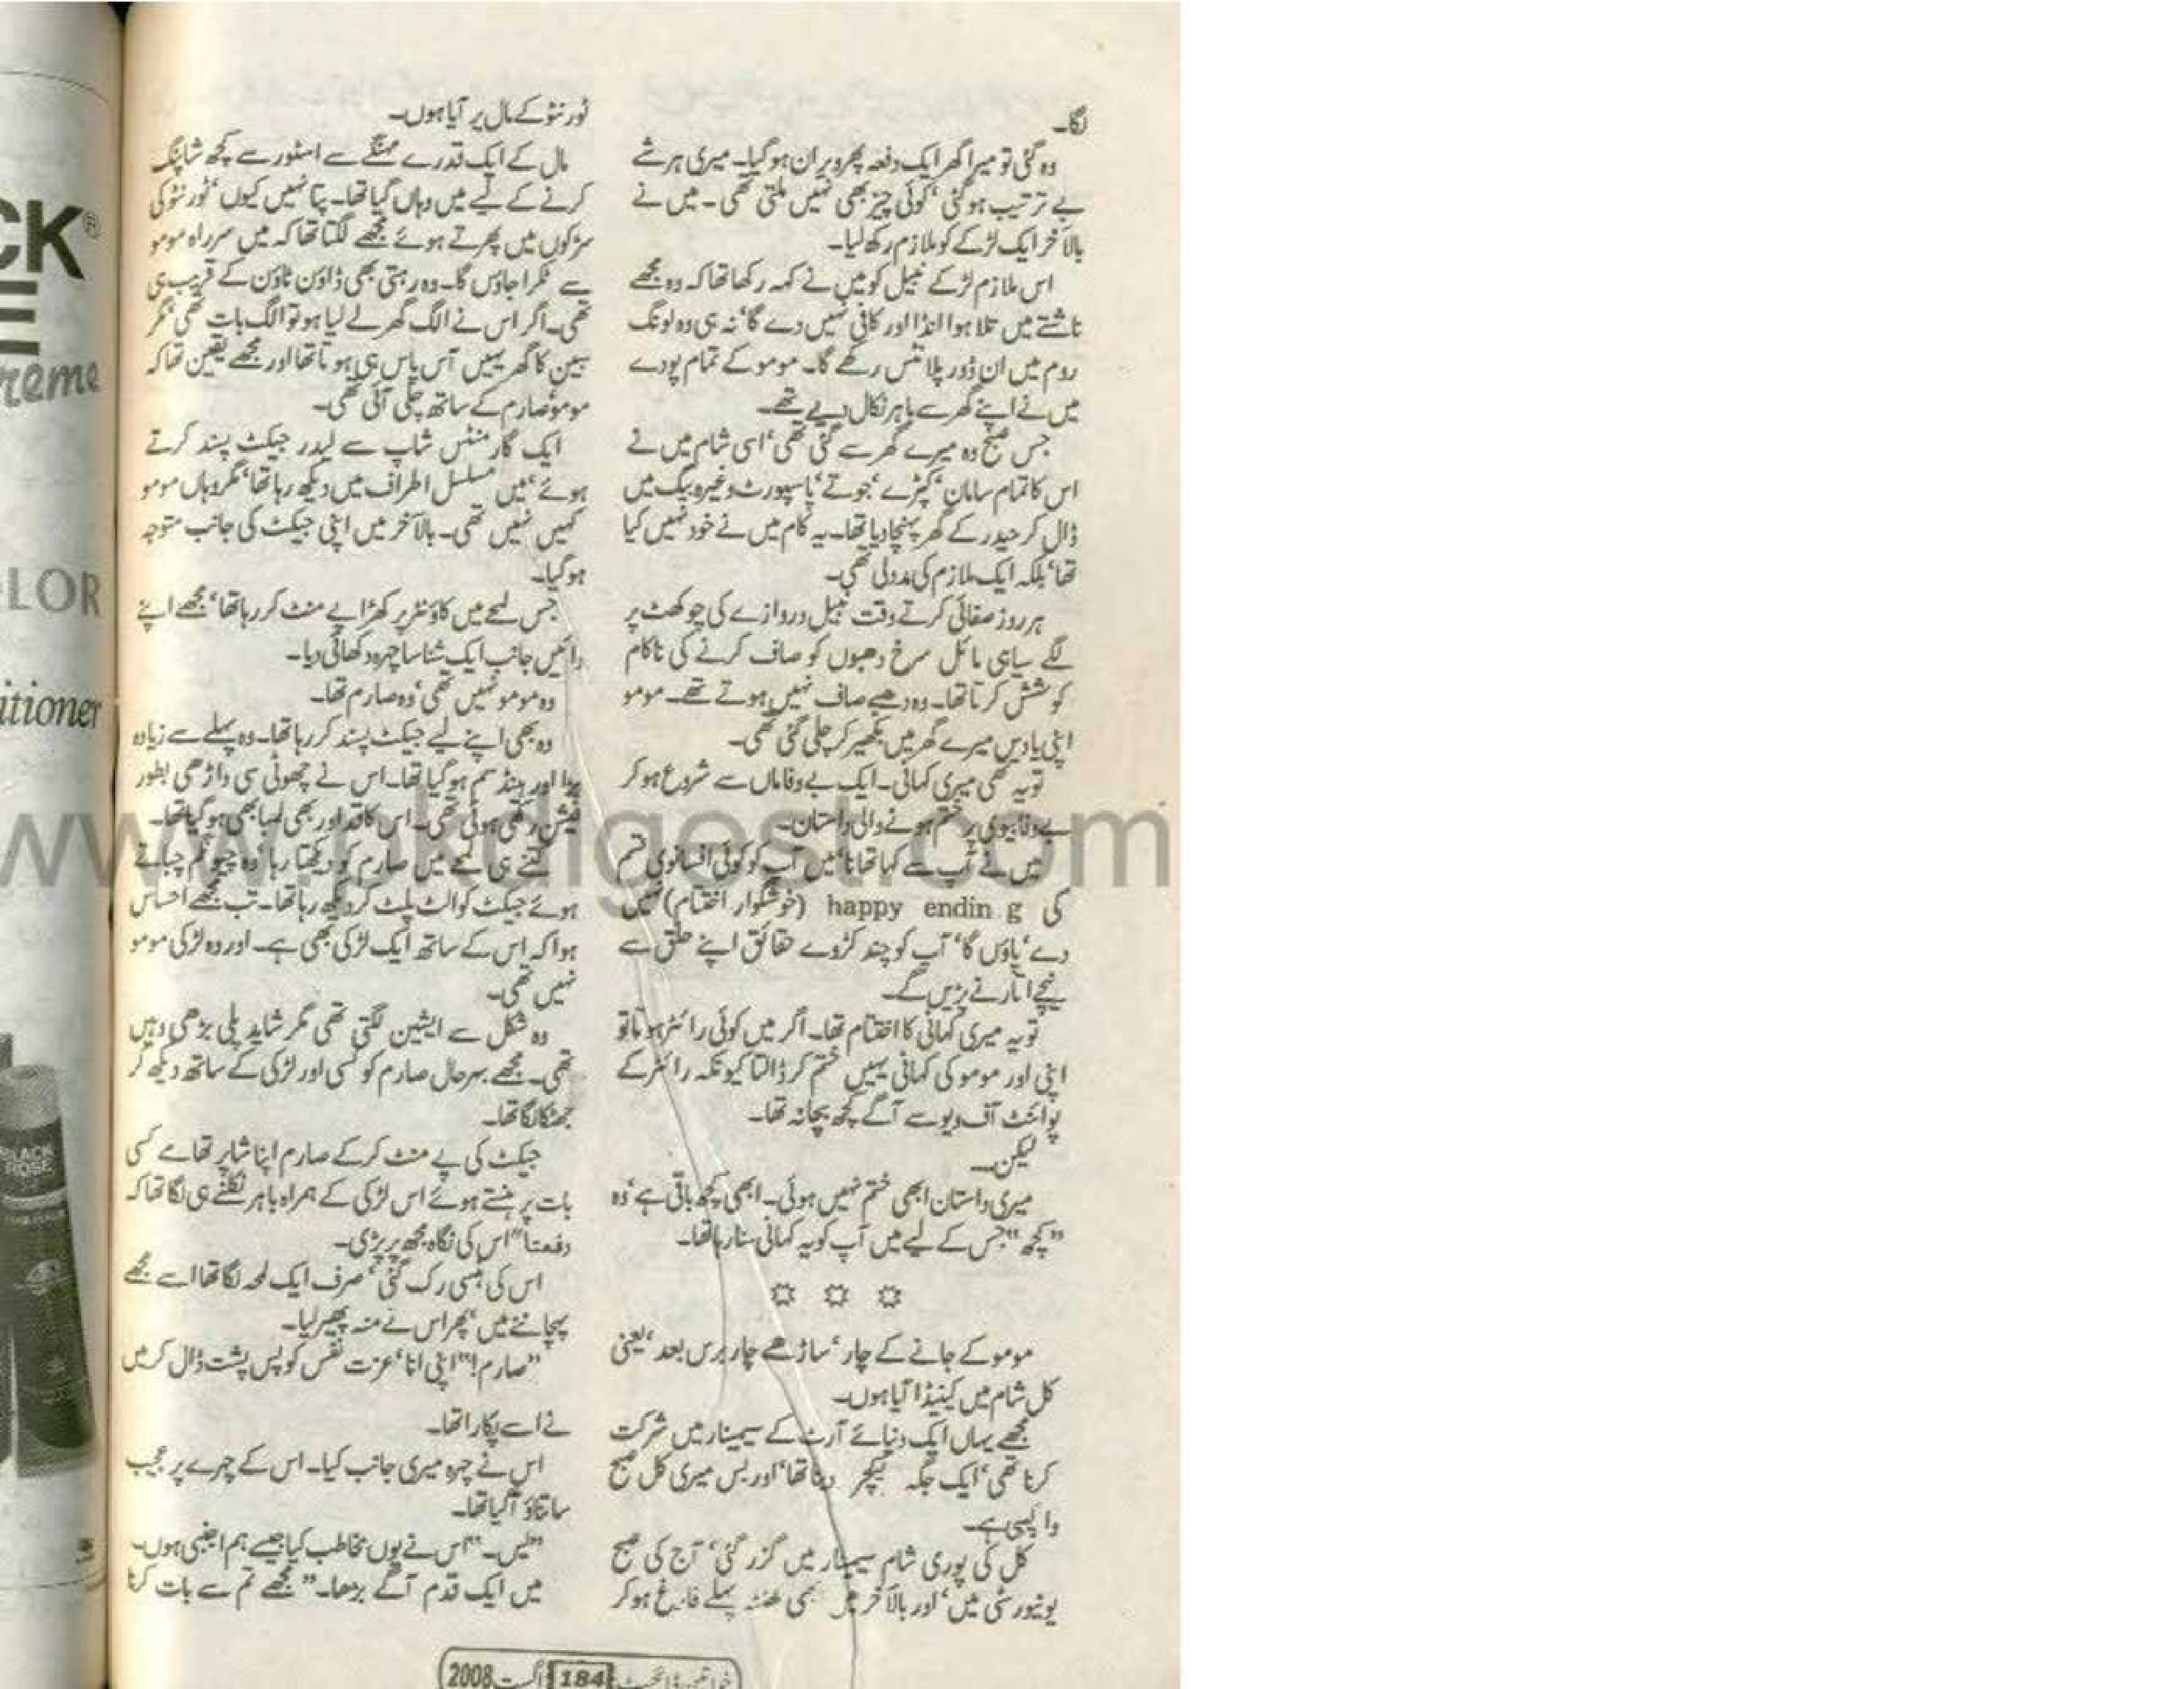 لگا۔
وہ گئی تو میرا گھر ایک دفعہ پھر ویران ہو گیا۔ میری ہر شے
بے ترتیب ہو گئی‘ کوئی چیز بھی نہیں ملتی تھی۔ میں نے
بالآخر ایک لڑکے کو ملازم رکھ لیا۔
اس ملازم لڑکے نبیل کو میں نے کہہ رکھا تھا کہ وہ مجھے
ناشتے میں تلا ہوا انڈا اور کافی نہیں دے گا‘ نہ ہی وہ لونگ
روم میں ان ڈور پلانٹس رکھے گا۔ مومو کے تمام پودے
میں نے اپنے گھر سے باہر نکال دیے تھے۔
جس صبح وہ میرے گھر سے گئی تھی‘ اسی شام میں نے
اس کا تمام سامان‘ کپڑے‘ جوتے‘ پاسپورٹ وغیرہ بیگ میں
ڈال کر حیدر کے گھر پہنچا دیا تھا۔ یہ کام میں نے خود نہیں کیا
تھا‘ بلکہ ایک ملازم کی مدد لی تھی۔
ہر روز صفائی کرتے وقت نبیل دروازے کی چوکھٹ پر
لگے سیاہی مائل سرخ دھبوں کو صاف کرنے کی ناکام
کوشش کرتا تھا۔ وہ دھبے صاف نہیں ہوتے تھے۔ مومو
اپنی یادیں میرے گھر میں بکھیر کر چلی گئی تھی۔
تو یہ تھی میری کہانی۔ ایک بے وفا ماں سے شروع ہو کر
بے وفا بیوی پر ختم ہونے والی داستان۔
میں نے آپ سے کہا تھا نا‘ میں آپ کو کوئی افسانوی قسم
کی happy endin g (خوشگوار اختتام) نہیں
دے‘ پاؤں گا‘ آپ کو چند کڑوے حقائق اپنے حلق سے
نیچے اتارنے پڑیں گے۔
تو یہ میری کہانی کا اختتام تھا۔ اگر میں کوئی رائٹر ہوتا تو
اپنی اور مومو کی کہانی یہیں ختم کر ڈالتا کیونکہ رائٹر کے
پوائنٹ آف ویو سے آگے کچھ بچا نہ تھا۔
لیکن۔
میری داستان ابھی ختم نہیں ہوئی۔ ابھی کچھ باقی ہے‘ وہ
”کچھ“ جس کے لیے میں آپ کو یہ کہانی سنا رہا تھا۔
مومو کے جانے کے چار‘ ساڑھے چار برس بعد‘ یعنی
کل شام میں کینیڈا آیا ہوں۔
مجھے یہاں ایک دنیائے آرٹ کے سیمینار میں شرکت
کرنا تھی‘ ایک جگہ لیکچر دینا تھا‘ اور بس میری کل صبح
واپسی ہے۔
کل کی پوری شام سیمینار میں گزر گئی‘ آج کی صبح
یونیورسٹی میں‘ اور بالآخر گھنٹہ پہلے فارغ ہو کر
ٹورنٹو کے مال پر آیا ہوں۔
مال کے ایک قدرے مہنگے سے اسٹور سے کچھ شاپنگ
کرنے کے لیے میں وہاں گیا تھا۔ پتا نہیں کیوں‘ ٹورنٹو کی
سڑکوں میں پھرتے ہوئے مجھے لگتا تھا کہ میں سرراہ مومو
سے ٹکرا جاؤں گا۔ وہ رہتی بھی ڈاؤن ٹاؤن کے قریب ہی
تھی۔ اگر اس نے الگ گھر لے لیا ہو تو الگ بات تھی مگر
سبین کا گھر یہیں آس پاس ہی ہوتا تھا اور مجھے یقین تھا کہ
مومو صارم کے ساتھ چلی آئی تھی۔
ایک گارمنٹس شاپ سے لیدر جیکٹ پسند کرتے
ہوئے‘ میں مسلسل اطراف میں دیکھ رہا تھا‘ مگر وہاں مومو
کہیں نہیں تھی۔ بالآخر میں اپنی جیکٹ کی جانب متوجہ
ہو گیا۔
جس لمحے میں کاؤنٹر پر کھڑا پے منٹ کر رہا تھا‘ مجھے اپنے
دائیں جانب ایک شناسا چہرہ دکھائی دیا۔
وہ مومو نہیں تھی‘ وہ صارم تھا۔
وہ بھی اپنے لیے جیکٹ پسند کر رہا تھا۔ وہ پہلے سے زیادہ
بڑا اور ہینڈسم ہو گیا تھا۔ اس نے چھوٹی سی داڑھی بطور
فیشن رکھی ہوئی تھی۔ اس کا قد اور بھی لمبا بھی ہو گیا تھا۔
کتنے ہی لمحے میں صارم کو دیکھتا رہا‘ وہ چیونگم چباتے
ہوئے جیکٹ کو الٹ پلٹ کر دیکھ رہا تھا۔ تب مجھے احساس
ہوا کہ اس کے ساتھ ایک لڑکی بھی ہے۔ اور وہ لڑکی مومو
نہیں تھی۔
وہ شکل سے ایشین لگتی تھی مگر شاید پلی بڑھی وہیں
تھی۔ مجھے بہرحال صارم کو کسی اور لڑکی کے ساتھ دیکھ کر
جھٹکا لگا تھا۔
جیکٹ کی پے منٹ کر کے صارم اپنا شاپر تھامے کسی
بات پر ہنستے ہوئے اس لڑکی کے ہمراہ باہر نکلنے ہی لگا تھا کہ
دفعتاً اس کی نگاہ مجھ پر پڑی۔
اس کی ہنسی رک گئی‘ صرف ایک لمحہ لگا تھا اسے مجھے
پہچاننے میں‘ پھر اس نے منہ پھیر لیا۔
”صارم!“ اپنی انا‘ عزت نفس کو پس پشت ڈال کر میں
نے اسے پکارا تھا۔
اس نے چہرہ میری جانب کیا۔ اس کے چہرے پر عجیب
سا تناؤ آ گیا تھا۔
”یس۔“ اس نے یوں مخاطب کیا جیسے ہم اجنبی ہوں۔
میں ایک قدم آگے بڑھا۔ ”مجھے تم سے بات کرنا
خواتین ڈائجسٹ 184 اگست 2008
www.pkdigest.com
CK®
E
reme
LOR
itioner
BLACK
ROSE